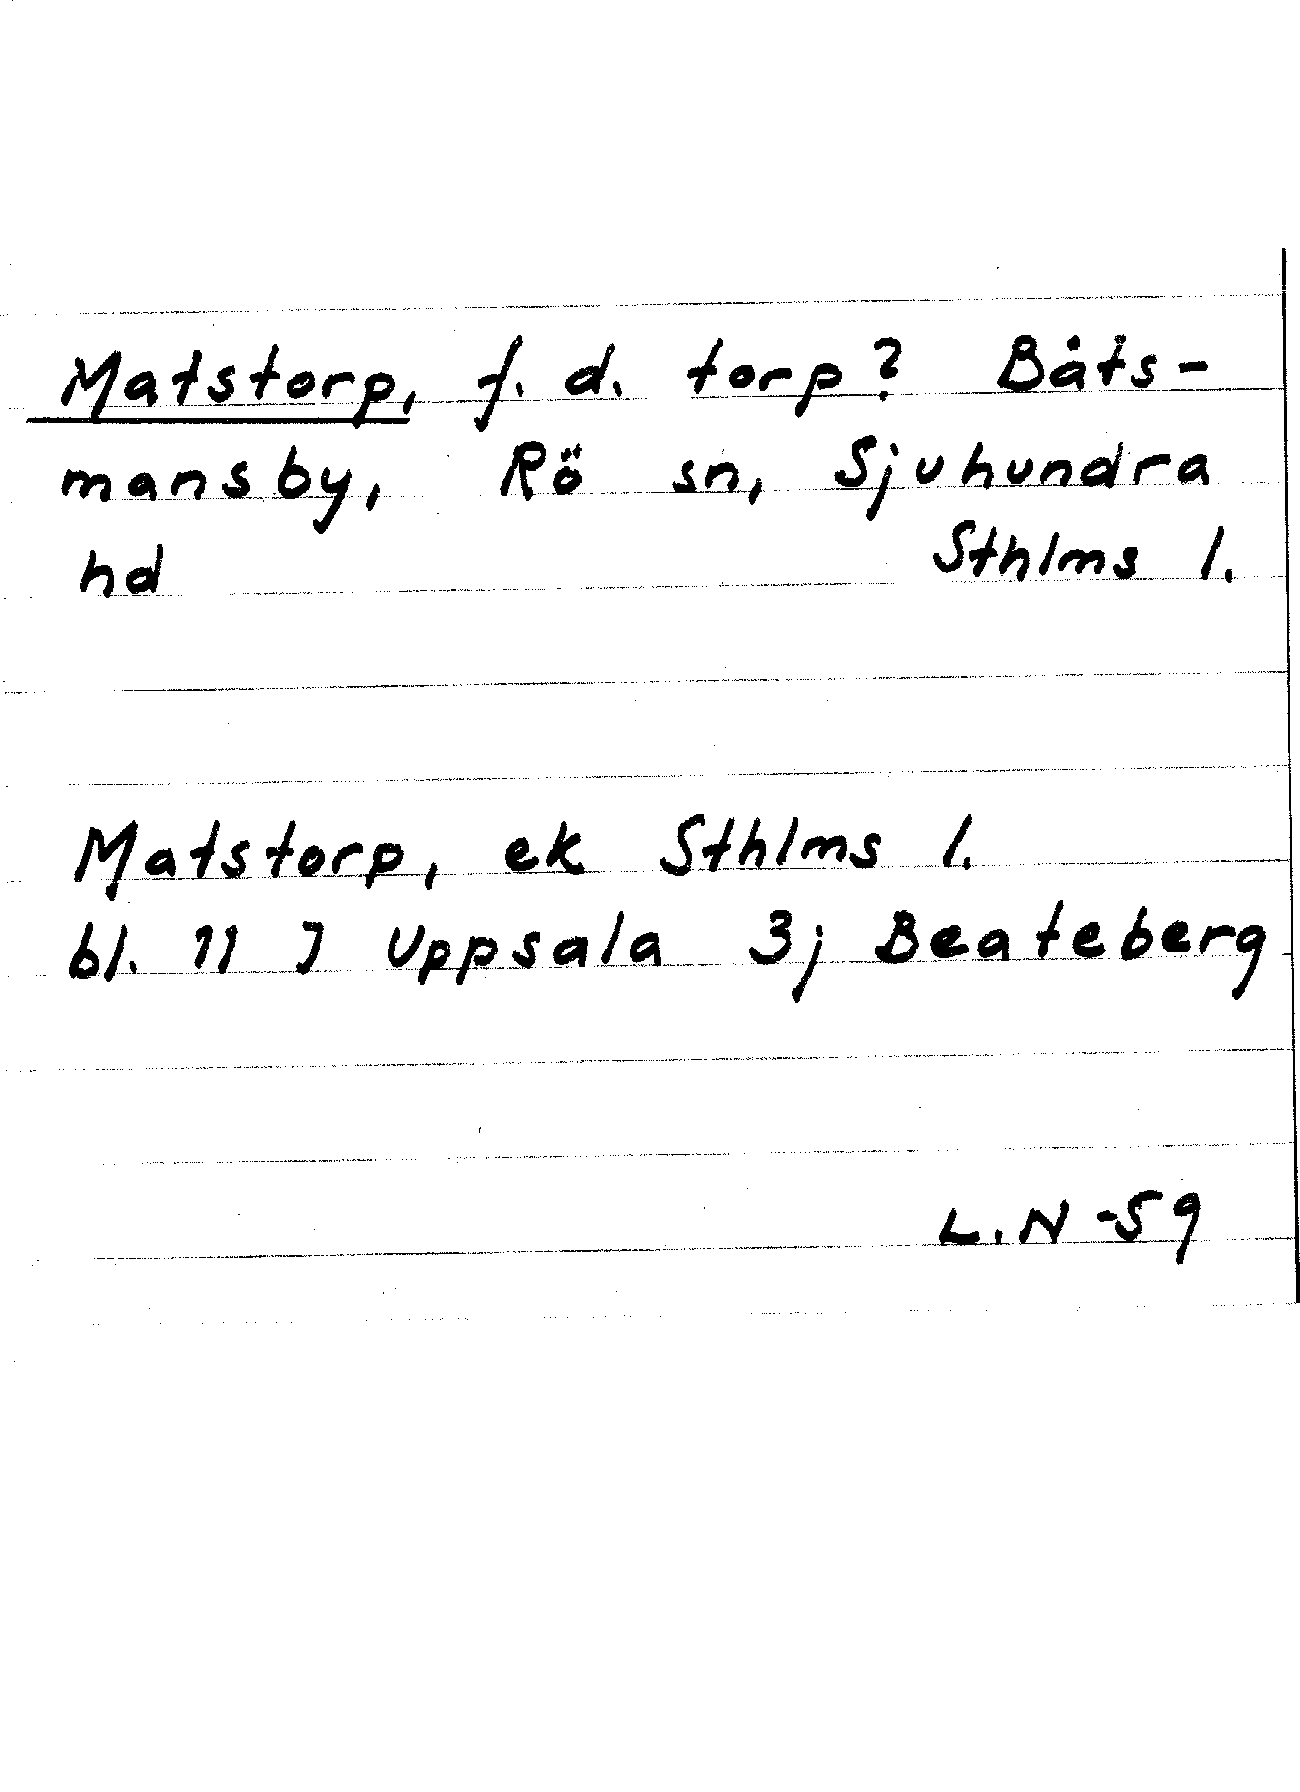 Matstorp, f. d. torp? Båts-
mansby, Rö sn, Sjuhundra
hd Sthlms l.
Matstorp, ek Sthlms l.
bl. 11 J Uppsala 3j Beateberg
L.N -59